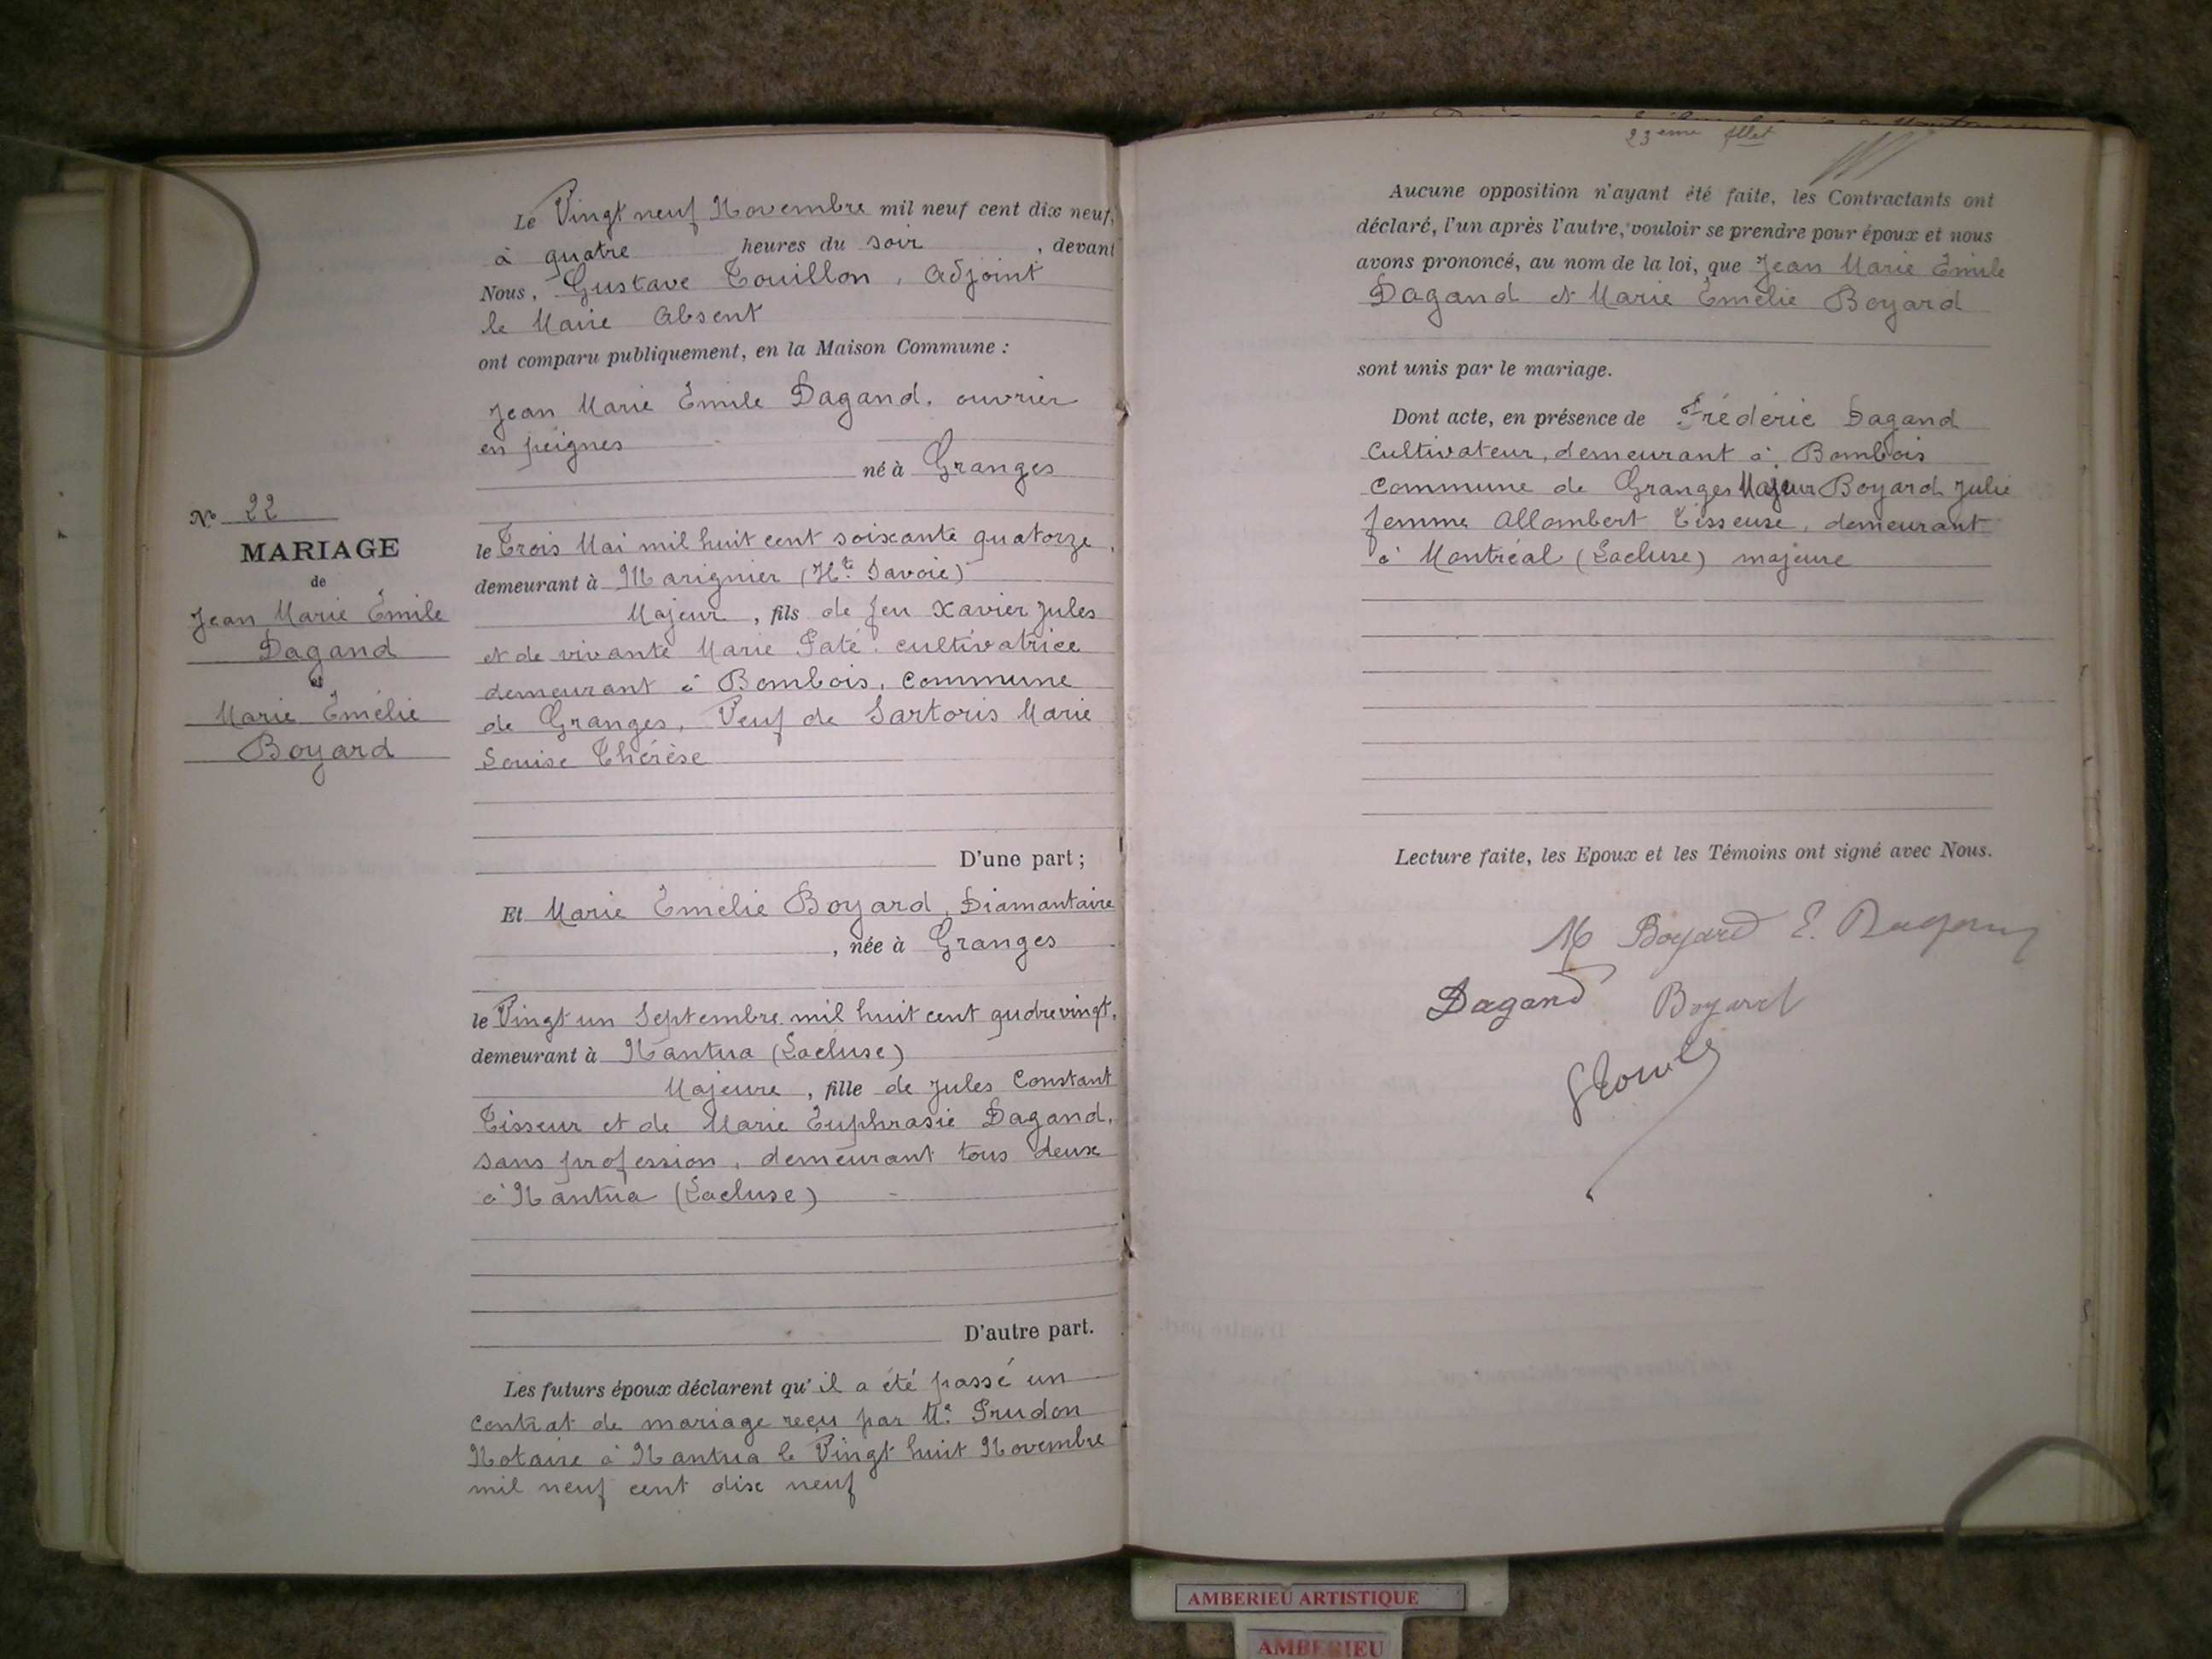 Le Vingt neuf Novembre mil neuf cent dix neuf,
à quatre heures du soir, devant
Nous, Gustave Touillon, Adjoint
le Maire Absent
ont comparu publiquement, en la Maison Commune :
Jean Marie Emile Dagand, ouvrier
en peignes
né à Granges
le Trois Mai mil huit cent soixante quatorze,
demeurant à Marignier (Hte Savoie)
Majeur, fils de feu Xavier Jules
et de vivante Marie Paté, cultivatrice
demeurant à Bombois, commune
de Granges, Veuf de Sartoris Marie
Louise Thérèse
D'une part ;
Nº 22
MARIAGE
de
Jean Marie Emile
Dagand
et
Marie Emélie
Boyard
Et Marie Emélie Boyard, Diamantaire
, née à Granges
le Vingt un Septembre mil huit cent quatrevingt,
demeurant à Nantua (Lacluse)
Majeure, fille de Jules Constant
Tisseur et de Marie Euphrasie Dagand,
sans profession, demeurant tous deux
à Nantua (Lacluse)
D'autre part.
Les futurs époux déclarent qu'il a été passé un
contrat de mariage reçu par Me Prudon
Notaire à Nantua le Vingt huit Novembre
mil neuf cent dix neuf
23ème fllet
Aucune opposition n'ayant été faite, les Contractants ont
déclaré, l'un après l'autre, vouloir se prendre pour époux et nous
avons prononcé, au nom de la loi, que Jean Marie Emile
Dagand et Marie Emélie Boyard
sont unis par le mariage.
Dont acte, en présence de Frédéric Dagand
Cultivateur, demeurant à Bombois
commune de Granges Majeur Boyard Julie
femme Allombert Tisseuse, demeurant
à Montréal (Lacluse) majeure
Lecture faite, les Epoux et les Témoins ont signé avec Nous.
M Boyard E. Dagand
Dagand Boyard
AMBERIEU ARTISTIQUE
AMBERIEU